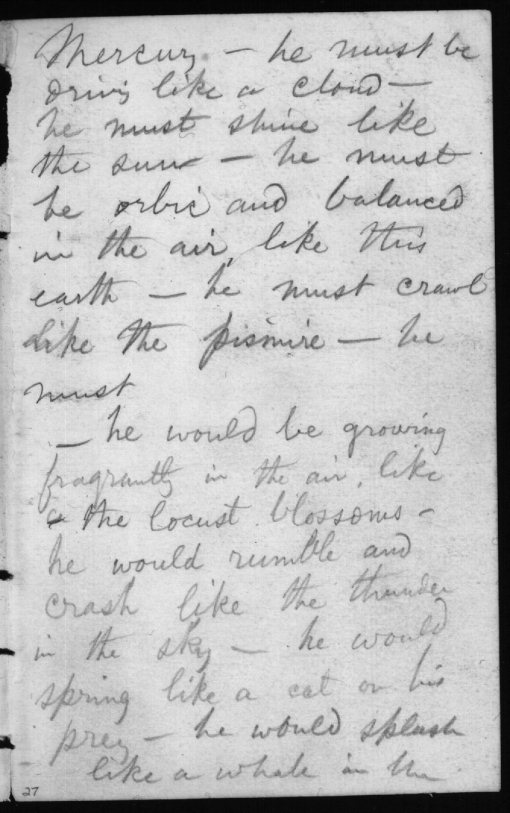 Mercury — he must be
driving like a cloud —
he must shine like
the sun — he must
be orbic and balanced
in the air, like this
earth — he must crawl
like the pismire — he
must
— he would be growing
fragrantly in the air, like
a the locust blossoms —
he would rumble and
crash like the thunder
in the sky — he would
spring like a cat on his
prey — he would splash
like a whale in the
27